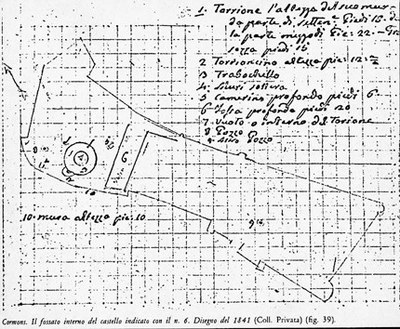 1. Torrione l'altezza del suo mur-
da parte di setten.e Piedi 18. d
la parte mezzodì Pie: 22. - Gro
sezza piedi 15
2 Torrioncino altezza pie: 12
3 Traboch​ello
4. Muri
5 Camerino profondo piedi 6.
6 Fossa profondo piedi 20
7. Vuoto o interno del Torrione
8 Pozzo
9. altro Pozzo
6
10
10. mura altezza pie: 10
Cormons. Il fossato interno del castello indicato con il n. 6. Disegno del 1841 (Coll. Privata) (fig. 39).